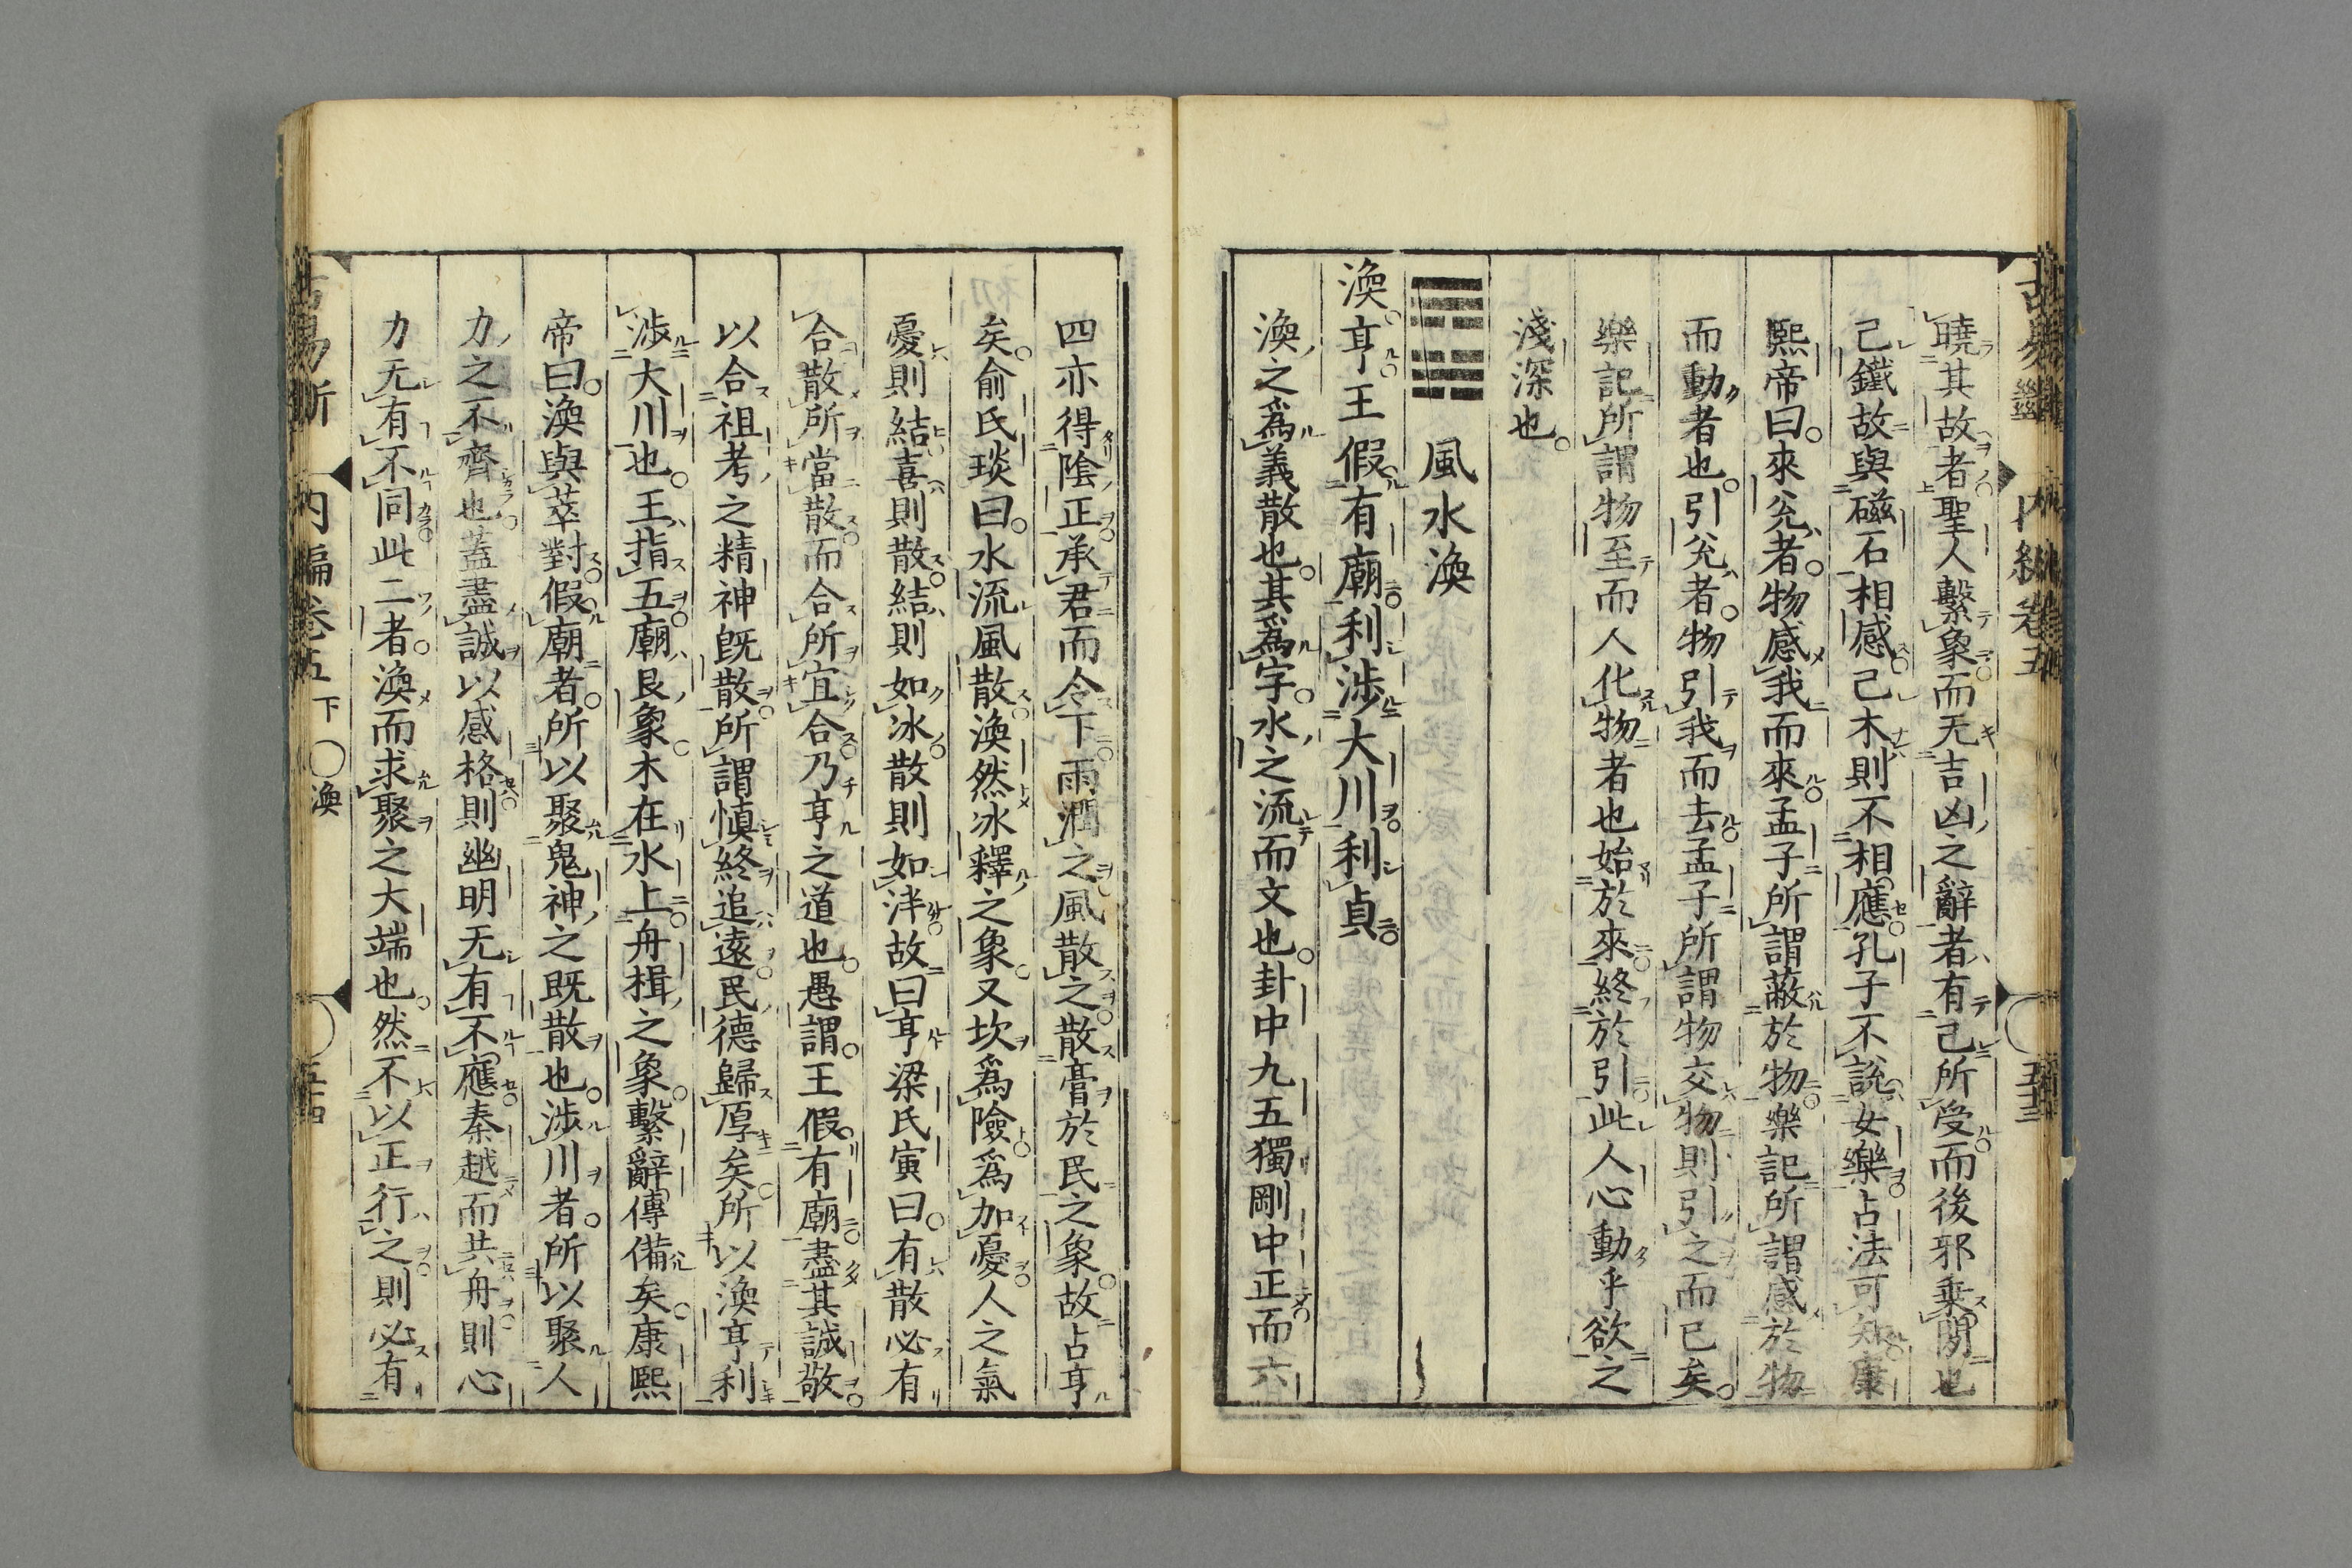 曉其故者聖人繫象而无吉凶之辭者有己所受而後邪乗間也
己鐵故與磁石相感己木則不相應孔子不說女樂占法可知康
熙帝曰來兊者物感我而來孟子所謂蔽於物樂記所謂感於物
而動者也引兊者物引我而去孟子所謂物交物則引之而已矣
樂記所謂物至而人化物者也始於來終於引此人心動乎欲之
淺深也
風水渙
渙亨王假有廟利渉大川利貞
渙之爲義散也其爲字水之流而文也卦中九五獨剛中正而六
四亦得陰正承君而令下雨潤之風散之散膏於民之象故占亨
矣俞氏琰曰水流風散渙然冰釋之象又坎爲險爲加憂人之氣
憂則結喜則散結則如冰散則如泮故曰亨梁氏寅曰有散必有
合散所當散而合所宜合乃亨之道也愚謂王假有廟盡其誠敬
以合祖考之精神既散所謂慎終追遠民德歸厚矣所以渙亨利
渉大川也王指五廟艮象木在水上舟楫之象繫辭傳備矣康熙
帝曰渙與萃對假廟者所以聚鬼神之既散也渉川者所以聚人
力之不齊也蓋盡誠以感格則幽明无有不應秦越而共舟則心
力无有不同此二者渙而求聚之大端也然不以正行之則必有
古易斷 內編卷五 下 ○渙 五十四